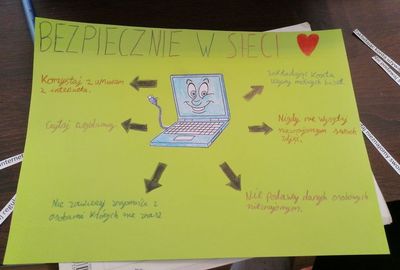 BEZPIECZNIE W SIECI
Korzystaj z umiarem
z internetu.
zakładając konta
Czytaj regulaminy
Nigdy nie wysyłaj
nieznajomym swoich
zdjęć.
Nie zawieraj znajomości z
osobami których nie znasz
Nie podawaj danych osobowych
nieznajomym.
internet